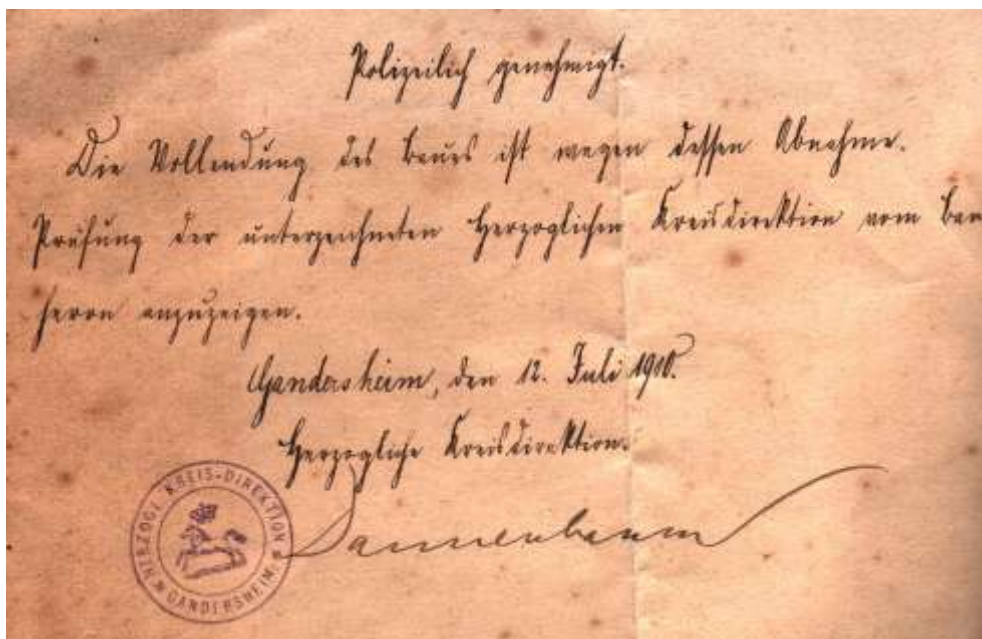 Polizeilich genehmigt.
Die Vollendung des Baues ist wegen dessen Abnahme.
Prüfung der unterzeichneten Herzoglichen Kreisdirektion vom Bau
herrn anzuzeigen.
Gandersheim, den 12. Juli 1910.
Herzogliche Kreisdirektion.
HERZOGL. KREIS-DIREKTION
GANDERSHEIM